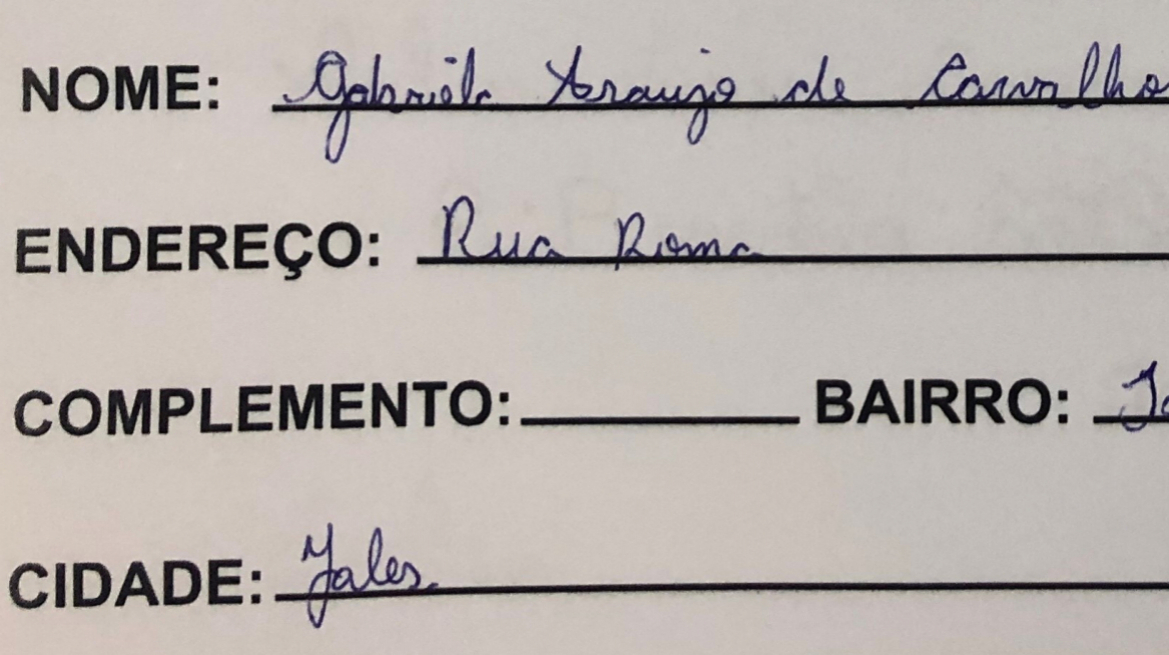 NOME: Gabriela Araujo de Carvalho
ENDEREÇO: Rua Roma
COMPLEMENTO: BAIRRO:
CIDADE: Jales